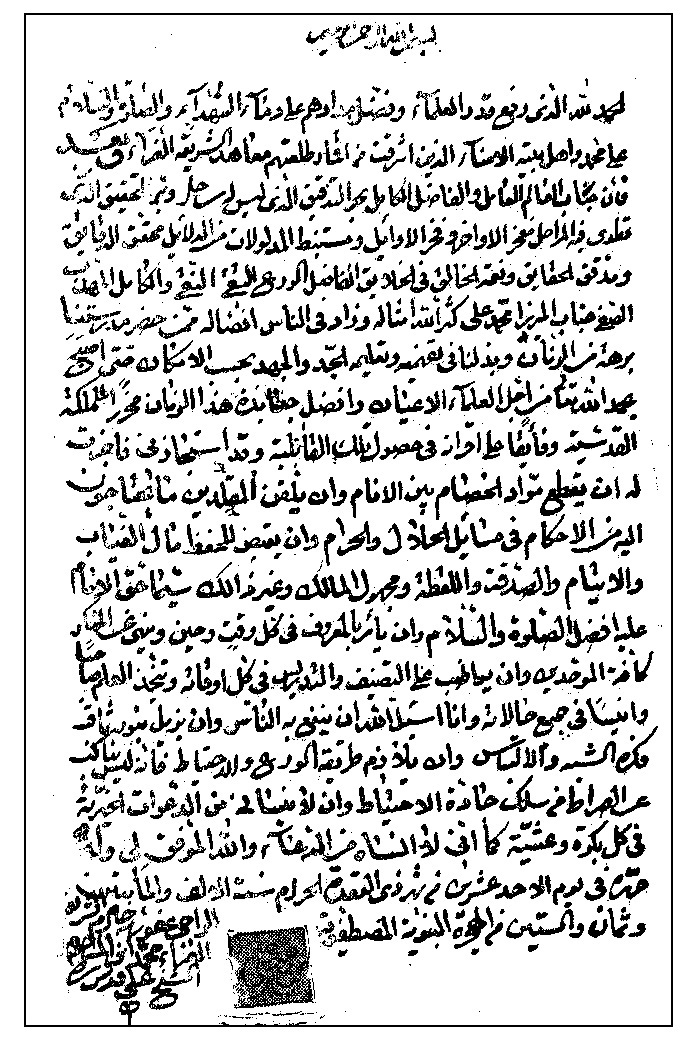 بسم الله الرحمن الرحيم
الحمد لله الذي رفع قدر العلماء وفضل مدادهم على دماء الشهداء والصلوة والسلام
على محمد واهل بيته الامناء الذين اشرقت من طلعتهم معاهد الشريعة الغراء وبعد
فان جناب العالم العامل والفاضل الكامل بحر التدقيق الذي ليس له ساحل وبحر التحقيق الذي
فيه المراحل مفخر الاواخر وفخر الاوايل ومستنبط المدلولات من الدلايل محقق الدقايق
ومدقق الحقايق وثقة الخالق في الخلايق الفاضل الورع التقي النقي والكامل المهذب
الصفي جناب الميرزا محمد علي كثر الله امثاله وزاد في الناس افضاله ممن حضر
برهة من الزمان وبذلنا في تفهيمه وتعليمه الجد والجهد بحسب الامكان حتى اصبح
بحمد الله تعالى من اجل العلماء الاعيان وافضل جهابذة هذا الزمان
القدسية وفايقا على اقرانه في حصول تلك القابلية وقد استجازني فاجزت
له ان يقطع مواد الخصام بين الانام وان يلقن المقلدين ما يحتاجون
اليه من الاحكام في مسايل الحلال والحرام وان يقبض للحفظ مال الغياب
والايتام والصدقة واللقطة ومجهول المالك وغير ذلك سيما حق الامام
عليه افضل الصلوة والسلام وان يأمر بالمعروف في كل وقت وحين وينهى عن المنكر
كافة الموحدين وان يواظب على التصنيف والتدريس في كل اوقاته ويتخذ العلم صاحبا
وانيسا في جميع حالاته وانا اسئل الله ان ينتفع به الناس وان يزيل بنور ثاقب
فكره الشبه والالتباس وان يلازم طريقة الورع والاحتياط فانه ليس بناكب
عن الصراط من سلك جادة الاحتياط وان لا ينساني من الدعوات الخيرية
في كل بكرة وعشية كما اني لا انساه من الدعاء والله الموفق لي وله
حرره في يوم الاحد عشرين من شهر ذي القعدة الحرام سنة الالف والمأتين
وثمان والستين من الهجرة النبوية المصطفوية